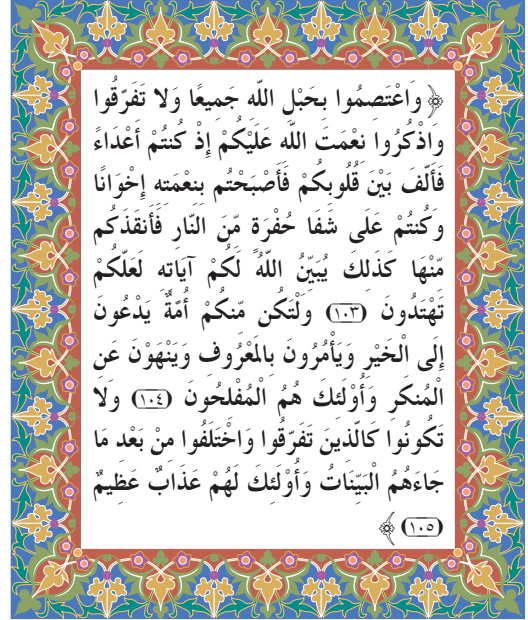 ﴿ وَاعْتَصِمُوا بِحَبْلِ اللَّهِ جَمِيعًا وَلَا تَفَرَّقُوا
وَاذْكُرُوا نِعْمَتَ اللَّهِ عَلَيْكُمْ إِذْ كُنتُمْ أَعْدَاءً
فَأَلَّفَ بَيْنَ قُلُوبِكُمْ فَأَصْبَحْتُم بِنِعْمَتِهِ إِخْوَانًا
وَكُنتُمْ عَلَى شَفَا حُفْرَةٍ مِّنَ النَّارِ فَأَنقَذَكُم
مِّنْهَا كَذَلِكَ يُبَيِّنُ اللَّهُ لَكُمْ آيَاتِهِ لَعَلَّكُمْ
تَهْتَدُونَ (١٠٣) وَلْتَكُن مِّنكُمْ أُمَّةٌ يَدْعُونَ
إِلَى الْخَيْرِ وَيَأْمُرُونَ بِالْمَعْرُوفِ وَيَنْهَوْنَ عَنِ
الْمُنكَرِ وَأُوْلَئِكَ هُمُ الْمُفْلِحُونَ (١٠٤) وَلَا
تَكُونُوا كَالَّذِينَ تَفَرَّقُوا وَاخْتَلَفُوا مِنْ بَعْدِ مَا
جَاءَهُمُ الْبَيِّنَاتُ وَأُوْلَئِكَ لَهُمْ عَذَابٌ عَظِيمٌ
(١٠٥) ﴾